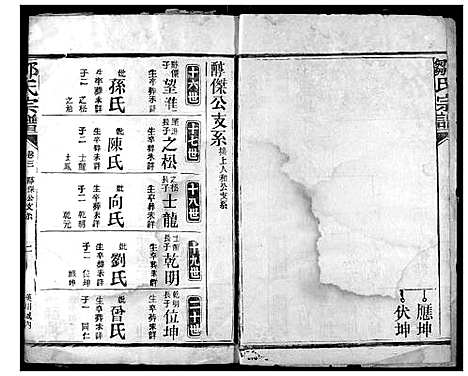 鄒氏宗譜
應坤
伏坤
醇傑公支系接上人和公支系
十六世
醇傑長子
望淮
生卒葬未詳
妣
孫氏
生卒葬未詳
子二
之松
十七世
望淮長子
之松
生卒葬未詳
妣
陳氏
生卒葬未詳
子二
士龍
士鳳
十八世
之松長子
士龍
生卒葬未詳
妣
向氏
生卒葬未詳
子二
乾明
乾元
十九世
士龍長子
乾明
生卒葬未詳
妣
劉氏
生卒葬未詳
子一
位坤
二十世
乾明子
位坤
生卒葬未詳
妣
曾氏
生卒葬未詳
子一
鄒氏宗譜
卷三
醇傑公支系
一